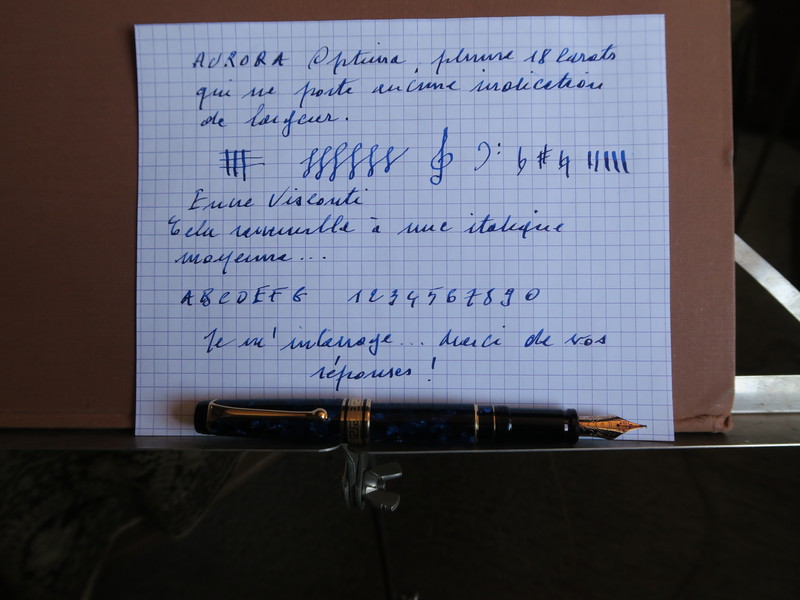 AURORA Optima, plume 18 carats
qui ne porte aucune indication
de largeur.
Encre Visconti
Cela ressemble à une italique
moyenne...
ABCDEFG 1234567890
Je m'interroge... merci de vos
réponses !